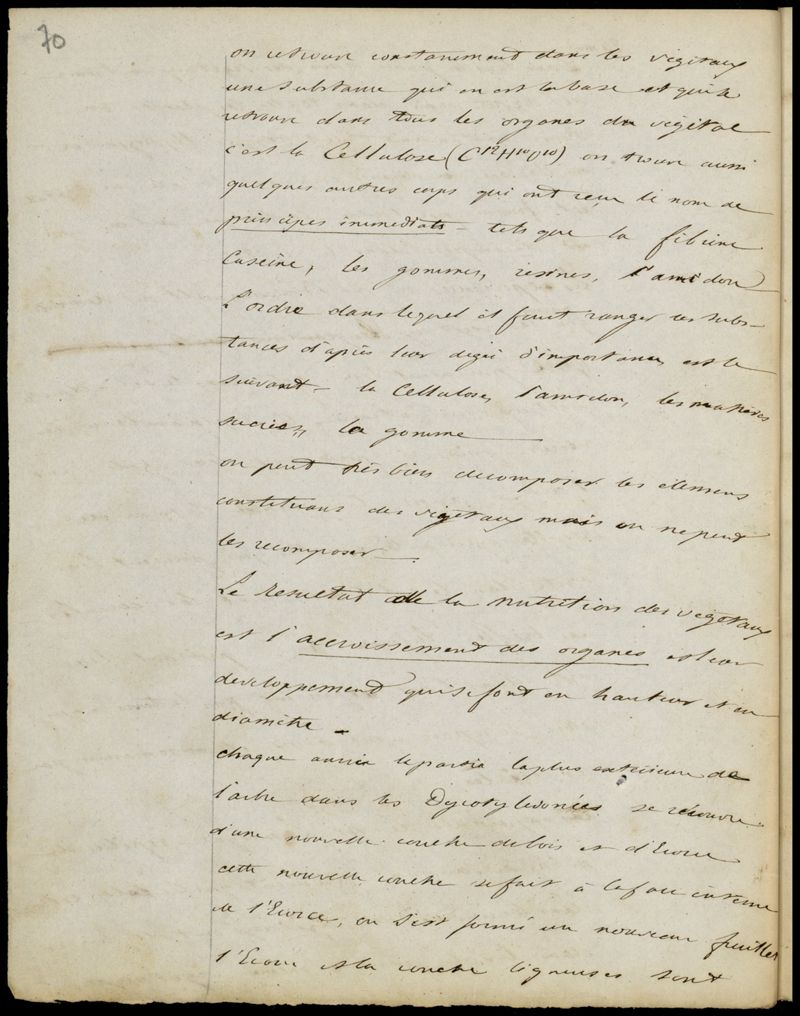 70
on retrouve constamment dans les végétaux
une substance qui en est la base et qui se
retrouve dans tous les organes du végétal
c'est la Cellulose (C¹²H¹⁰O¹⁰) on trouve aussi
quelques autres corps qui ont reçu le nom de
principes immediats - tels que la fibrine
Caseine, les gommes, resines, l'amidon
L'ordre dans lequel il faut ranger ces subs-
tances d'après leur degré d'importance, est le
suivant - la Cellulose, l'amidon, les matières
sucrées, la gomme
on peut très bien decomposer les elemens
constituans des végétaux mais on ne peut
les recomposer.
Le resultat de la nutrition des végétaux
est l'accroissement des organes et leur
developpement qui se font en hauteur et en
diamètre -
chaque année la partie la plus extérieure de
l'arbre dans les Dycotyledonées se recouvre
d'une nouvelle couche de bois et d'Ecorce
cette nouvelle couche se fait à la face interne
de l'Ecorce, où s'est formé un nouveau feuillet
l'Ecorce et la couche ligneuses sont